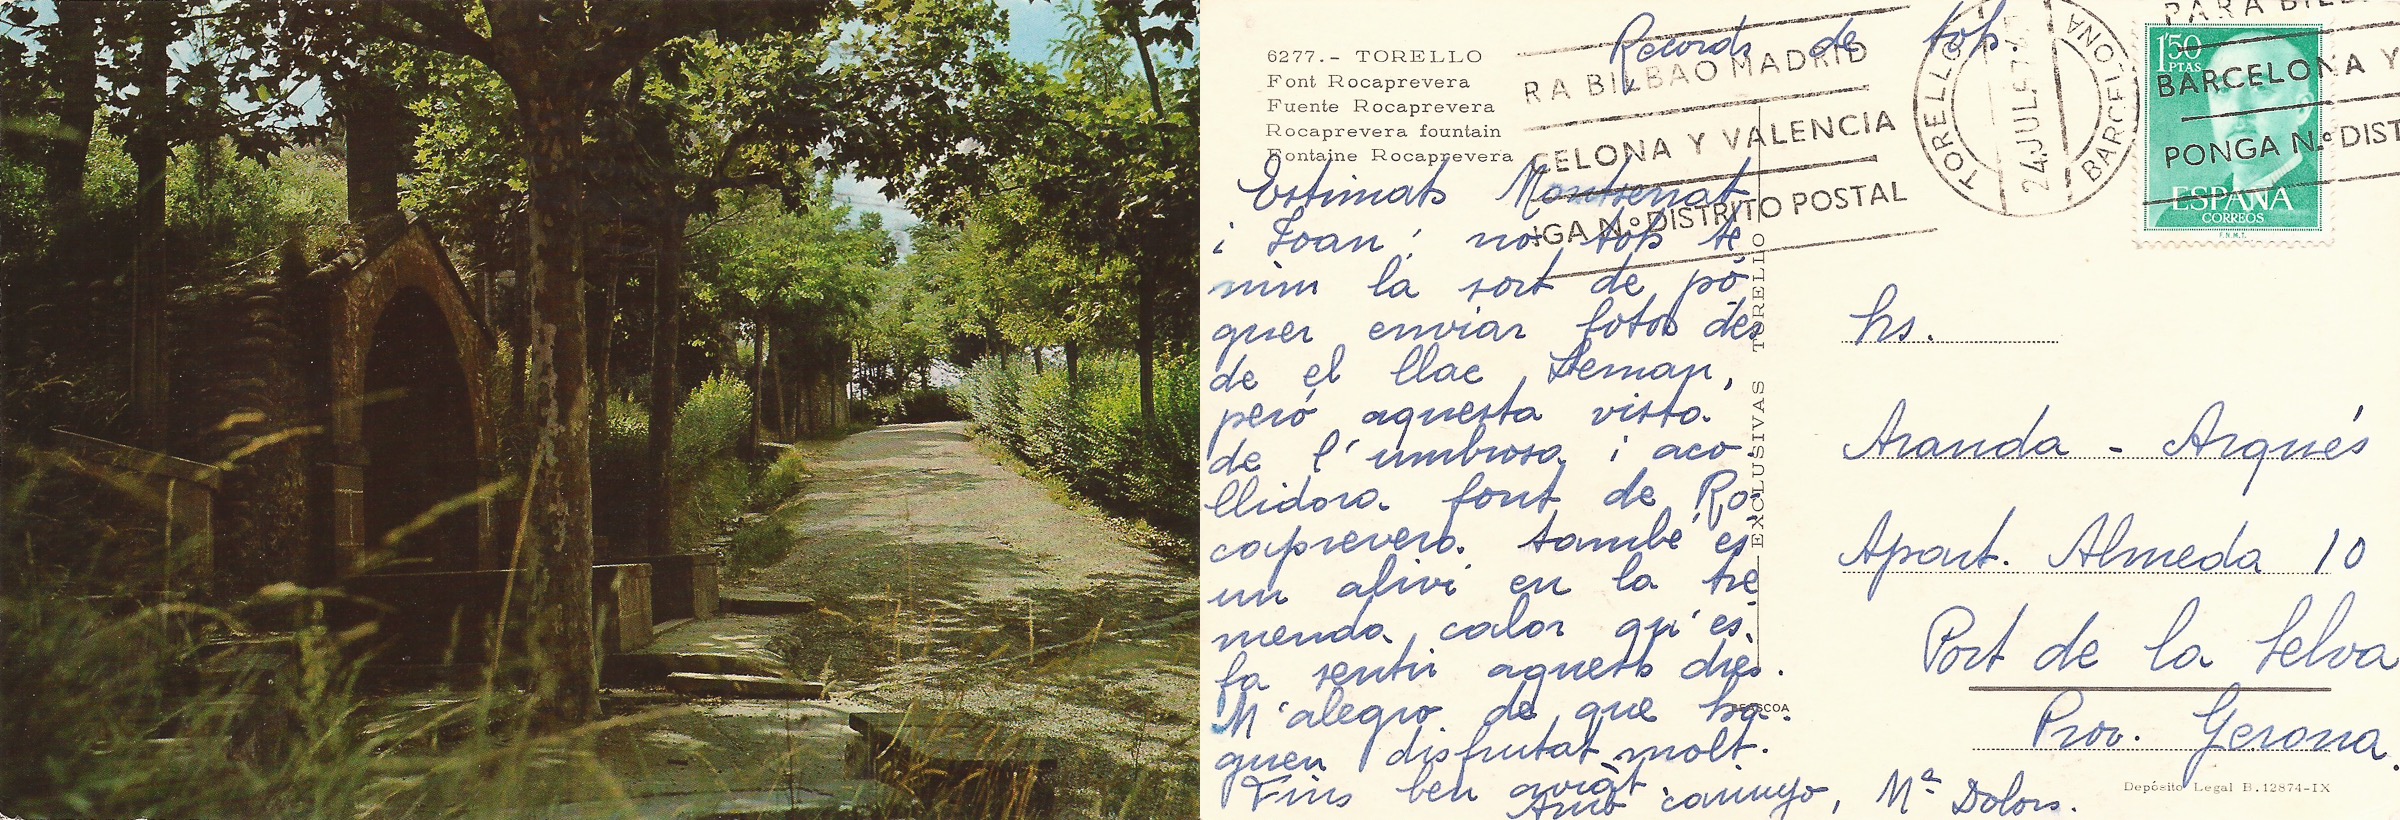 Records de tots
6277.- TORELLO
Font Rocaprevera
Fuente Rocaprevera
Rocaprevera fountain
Fontaine Rocaprevera
RA BILBAO MADRID
CELONA Y VALENCIA
GA N.º DISTRITO POSTAL
TORELLO
24 JUL
BARCELONA
PARA BIL
BARCELONA Y
PONGA N.º DIST
1'50
PTAS
ESPAÑA
CORREOS
F.N.M.T.
Estimats Montserrat
i Joan: no tots te
nim la sort de po
guer enviar fotos des
de el llac Leman,
però aquesta vista
de l'umbrosa i aco
llidora font de Ro
caprevera també es
un alivi en la tre
menda calor qu'es
fa sentir aquests dies.
M'alegro de que ha
guen disfrutat molt.
Fins ben aviàt
Amb carinyo, Mª Dolors.
EXCLUSIVAS TORELLO
BEASCOA
Hs.
Aranda - Arqués
Apart. Almeda 10
Port de la Selva
Prov. Gerona.
Depósito Legal B.12874-IX